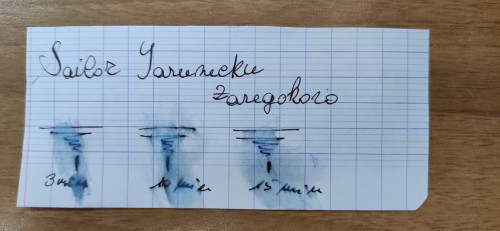 Sailor Yarumeku
Zaregokoro
3 min 10 min 15 min